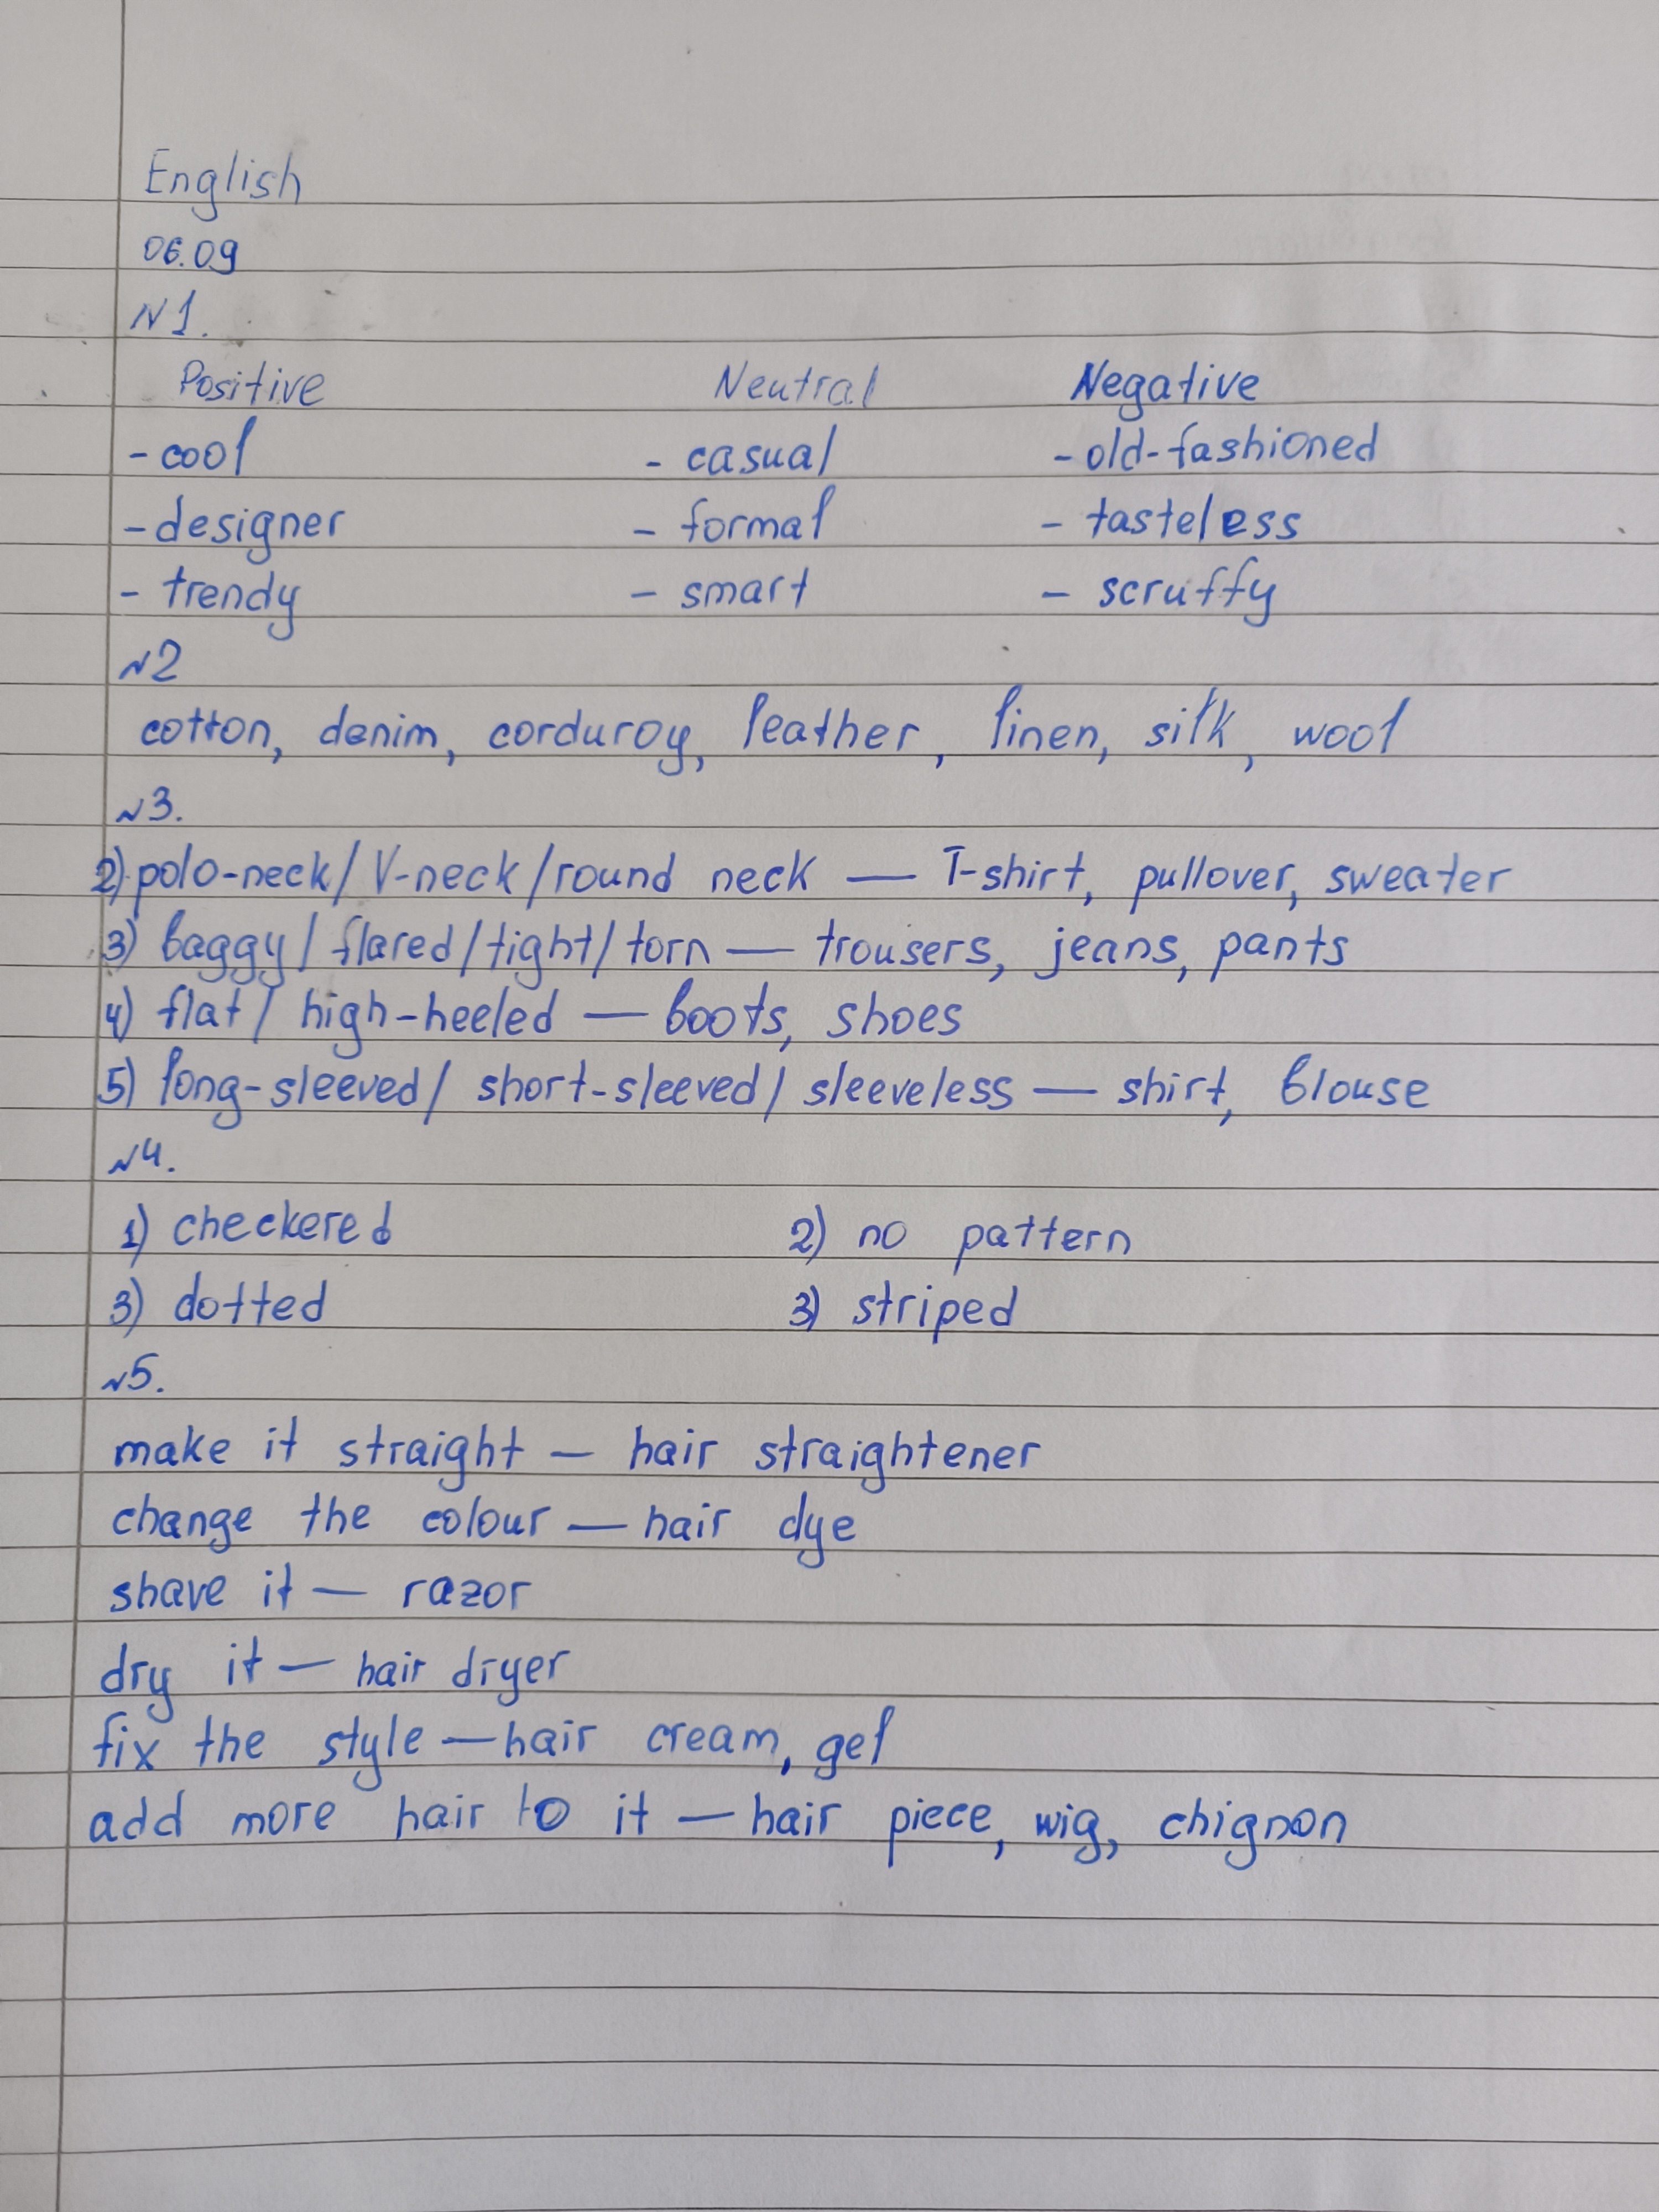 English
06.09
N1.
Positive Neutral Negative
- cool - casual - old-fashioned
- designer - formal - tasteless
- trendy - smart - scruffy
N2
cotton, denim, corduroy, leather, linen, silk, wool
N3.
2) polo-neck/ V-neck/round neck — T-shirt, pullover, sweater
3) baggy/ flared/tight/torn — trousers, jeans, pants
4) flat/ high-heeled — boots, shoes
5) long-sleeved/ short-sleeved/ sleeveless — shirt, blouse
N4.
1) checkered 2) no pattern
3) dotted 3) striped
N5.
make it straight — hair straightener
change the colour — hair dye
shave it — razor
dry it — hair dryer
fix the style — hair cream, gel
add more hair to it — hair piece, wig, chignon